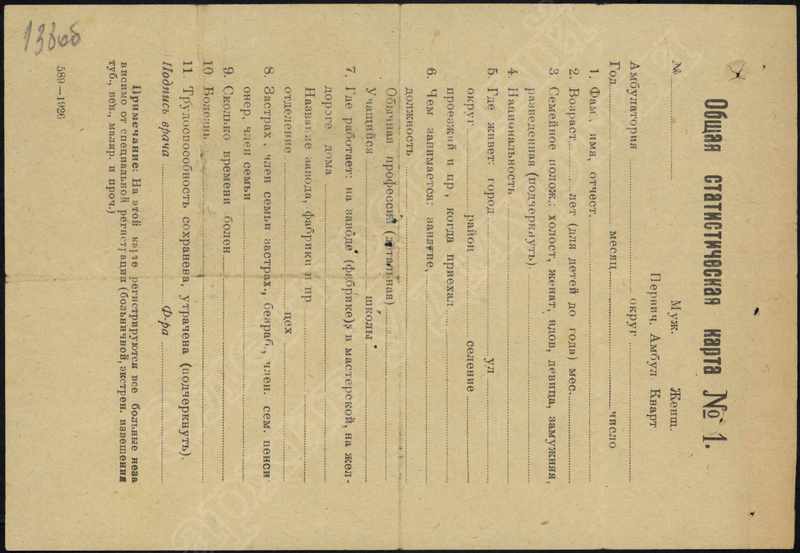 Общая статистическая карта № 1.
№ Муж. Женщ.
Первич. Амбул Кварт
Амбулатория округ
Год месяц число
1. Фам., имя, отчест.
2. Возраст лет (для детей до года) мес.
3 Семейное полож.: холост, женат, вдов, девица, замужняя,
разведенная (подчеркнуть)
4. Национальность
5. Где живет: город ул
округ район селение
проезжий и пр, когда приехал
6. Чем занимается: занятие,
должность
Обычная профессия (детальная)
Учащийся школы
7. Где работает: на заводе (фабрике), в мастерской, на жел-
дороге дома
Название завода, фабрики и пр
отделение цех
8. Застрах, член семьи застрах., безраб., член. сем. пенси
онер, член семьи
9. Сколько времени болен
10 Болезнь
11 Трудоспособность сохранена, утрачена (подчеркнуть).
Подпись врача Ф-ра
Примечание: На этой карте регистрируются все больные неза
висимо от специальной регистрации (больничной, экстрен. извещения
туб., вен., маляр. и проч.)
589—1926
138об